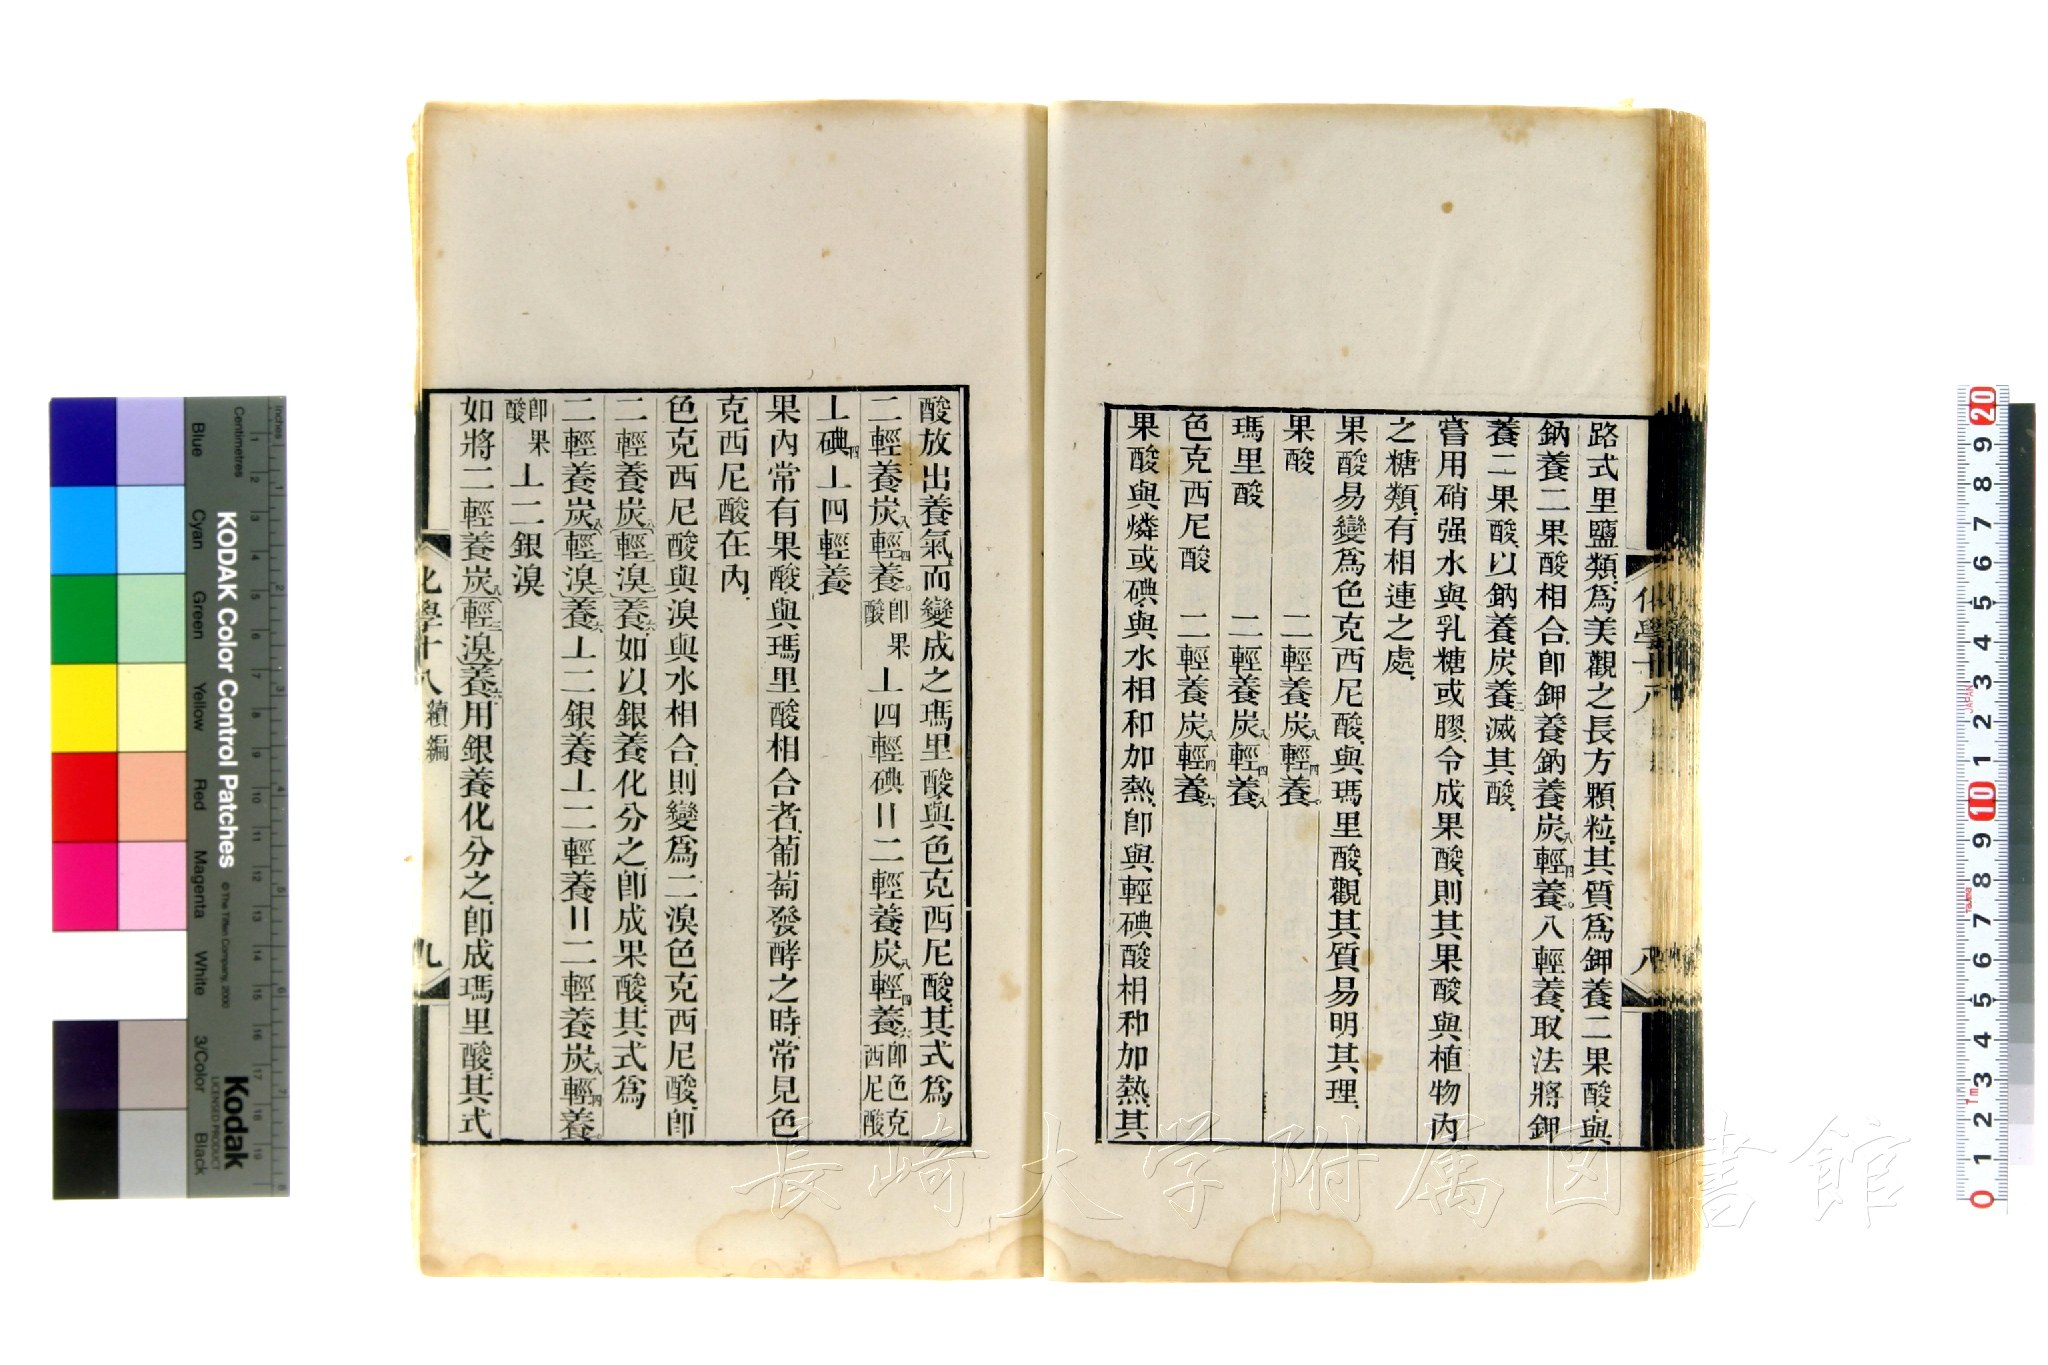 路式里鹽類爲美觀之長方顆粒其質爲鉀養二果酸與
鈉養二果酸相合卽鉀養鈉養炭八輕四養〇八輕養取法將鉀
養二果酸以鈉養炭養二滅其酸
嘗用硝强水與乳糖或膠令成果酸則其果酸與植物內
之糖類有相連之處
果酸易變爲色克西尼酸與瑪里酸觀其質易明其理
果酸 二輕養炭八輕四養〇
瑪里酸 二輕養炭八輕四養八
色克西尼酸 二輕養炭八輕四養六
果酸與燐或碘與水相和加熱卽與輕碘酸相和加熱其
酸放出養氣而變成之瑪里酸與色克西尼酸其式爲
二輕養炭八輕四養〇卽果酸丄四輕碘〢二輕養炭八輕四養六卽色克西尼酸
丄碘四丄四輕養
果內常有果酸與瑪里酸相合者葡萄發酵之時常見色
克西尼酸在內
色克西尼酸與溴與水相合則變爲二溴色克西尼酸卽
二輕養炭八(輕二溴二)養六如以銀養化分之卽成果酸其式爲
二輕養炭八(輕二溴二)養六丄二銀養丄二輕養〢二輕養炭八輕四養〇
卽果酸丄二銀溴
如將二輕養炭八(輕三溴)養六用銀養化分之卽成瑪里酸其式
化學十八 續編
八
化學十八 續編
九
KODAK Color Control Patches
© The Tiffen Company, 2000
Kodak
LICENSED PRODUCT
Inches
Centimetres
Blue
Cyan
Green
Yellow
Red
Magenta
White
3/Color
Black
長崎大学附属図書館